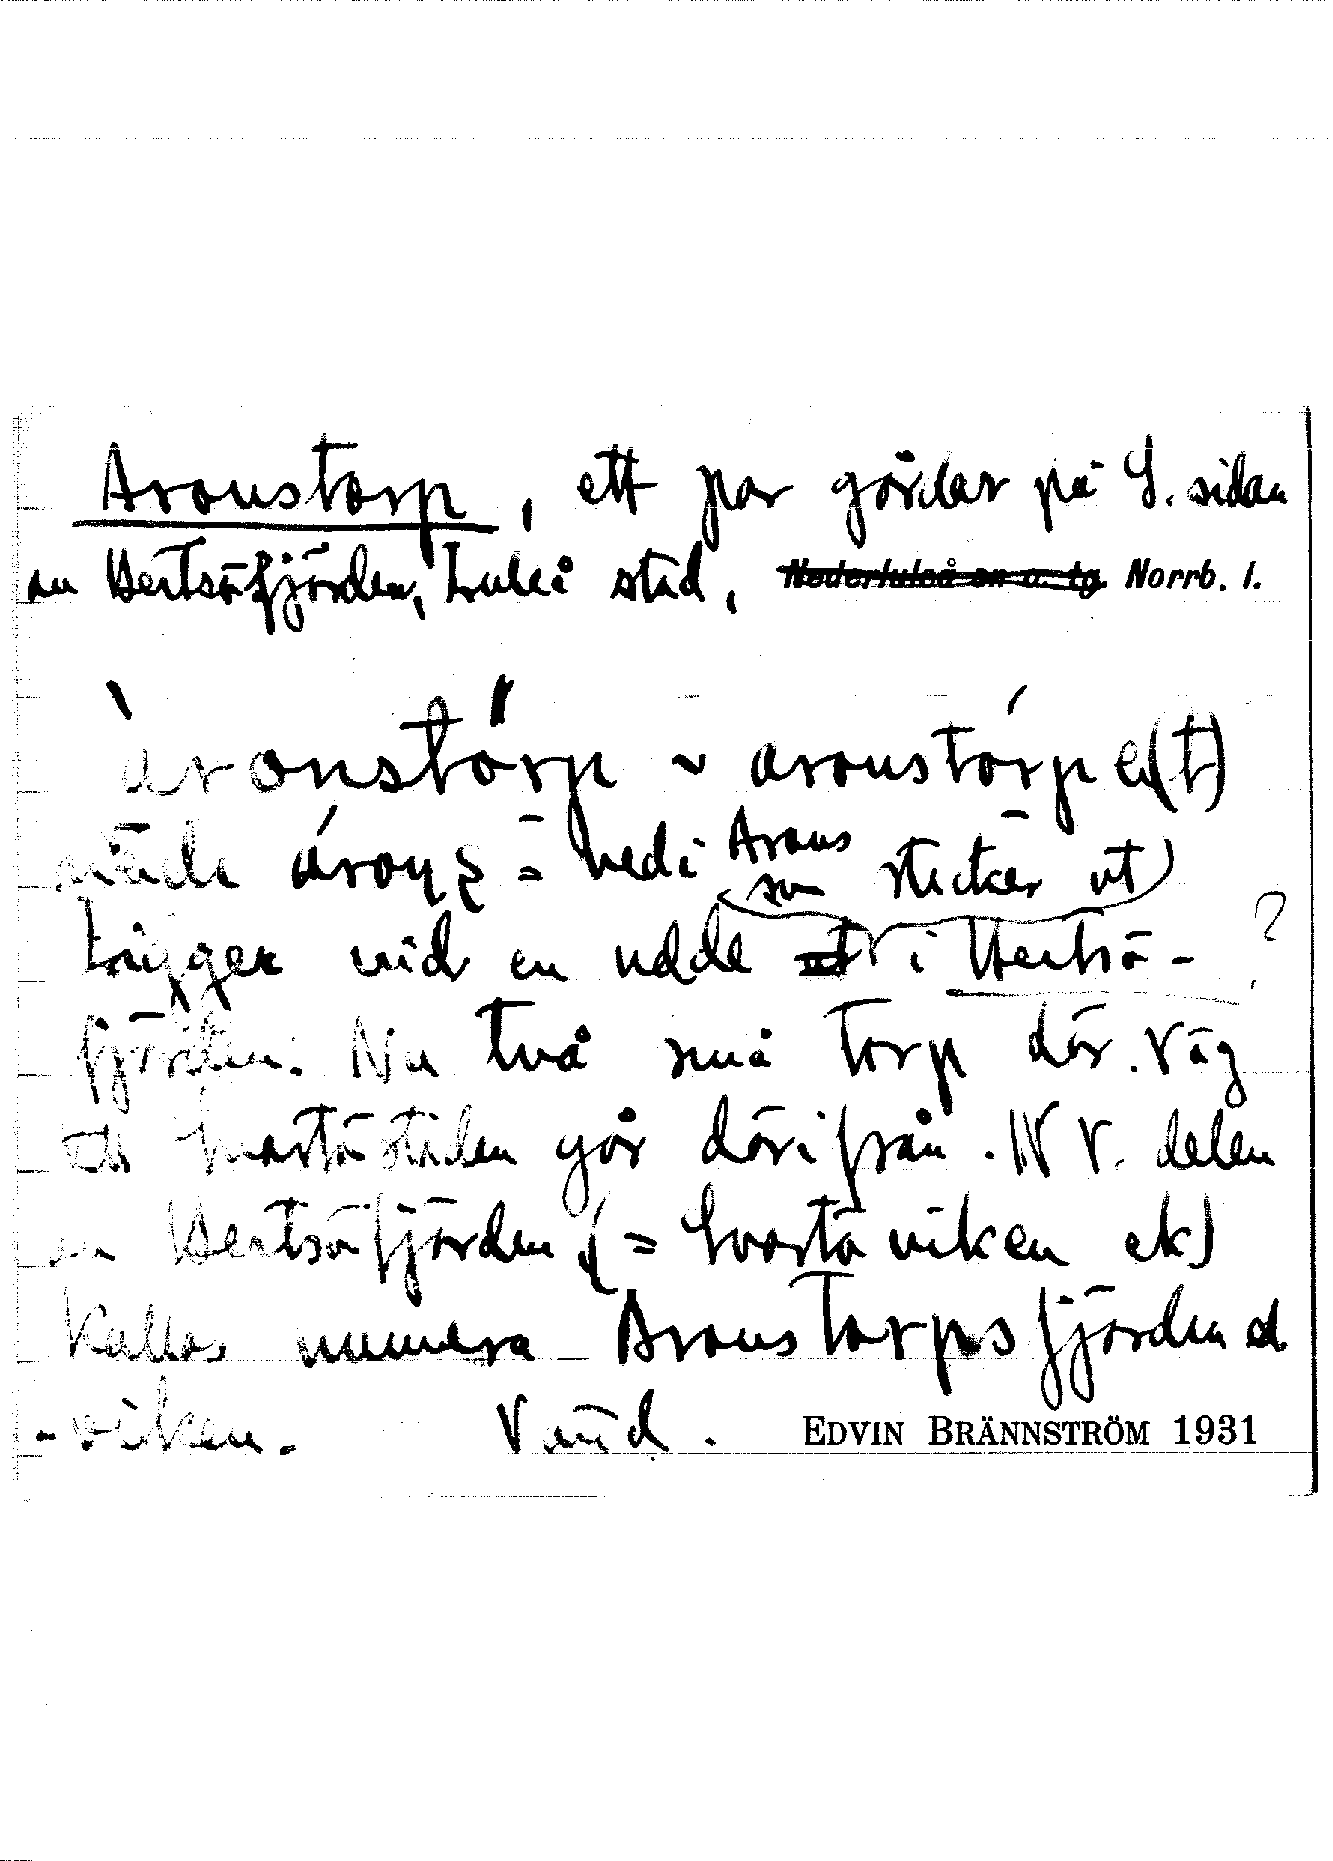 Aronstorp, ett par gårdar på S. sidan
av Hertsöfjärden, Luleå stad, Nederluleå sn o. tg Norrb. l.
àronstórp ~ aronstórpe(t)
= nedi Arons som sticker ut
ligger vid en udde ut i Hertsö- ?
fjärden. Nu två små torp där. Väg
till Svartöstaden går därifrån. N V. delen
av Hertsöfjärden (= Svartöviken ek)
kallas numera Aronstorpsfjärden el
-viken. EDVIN BRÄNNSTRÖM 1931